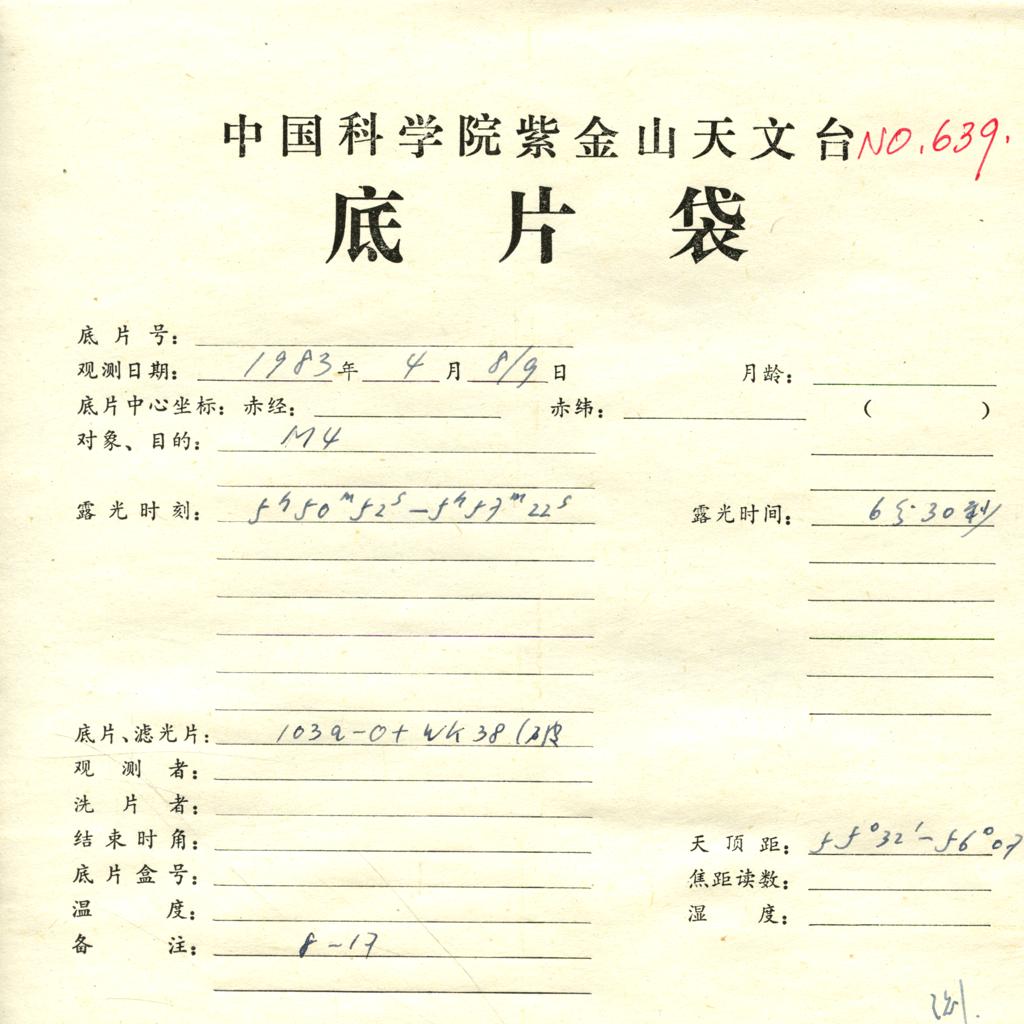 中国科学院紫金山天文台 NO.639.
底片袋
底片号：
观测日期： 1983年 4月 8/9日 月龄：
底片中心坐标：赤经： 赤纬： （ ）
对象、目的： M4
露光时刻： 5h50m52s-5h57m22s 露光时间： 6分30秒
底片、滤光片： 103a-O+ WK38
观测者：
洗片者：
结束时角： 天顶距： 55°32′-56°07
底片盒号： 焦距读数：
温度： 湿度：
备注： 8-17